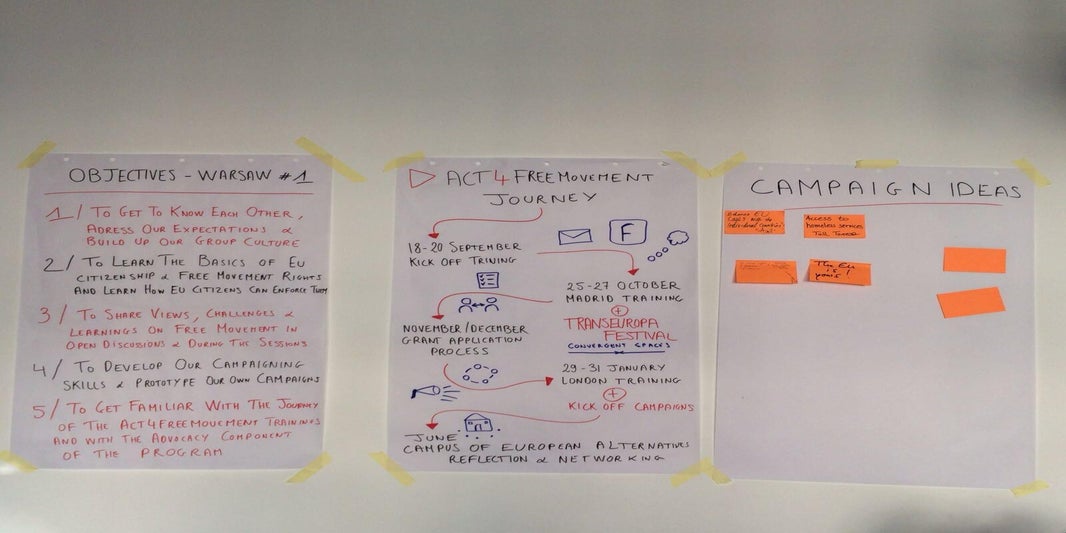 OBJECTIVES - WARSAW #1
1/ TO GET TO KNOW EACH OTHER,
ADRESS OUR EXPECTATIONS &
BUILD UP OUR GROUP CULTURE
2/ TO LEARN THE BASICS OF EU
CITIZENSHIP & FREE MOVEMENT RIGHTS
AND LEARN HOW EU CITIZENS CAN ENFORCE THEM
3/ TO SHARE VIEWS, CHALLENGES &
LEARNINGS ON FREE MOVEMENT IN
OPEN DISCUSSIONS & DURING THE SESSIONS
4/ TO DEVELOP OUR CAMPAIGNING
SKILLS & PROTOTYPE OUR OWN CAMPAIGNS
5/ TO GET FAMILIAR WITH THE JOURNEY
OF THE ACT4FREEMOVEMENT TRAININGS
AND WITH THE ADVOCACY COMPONENT
OF THE PROGRAM
ACT4FREEMOVEMENT
JOURNEY
18-20 SEPTEMBER
KICK OFF TRINING
F
25-27 OCTOBER
MADRID TRAINING
+
TRANSEUROPA
FESTIVAL
CONVERGENT SPACES
NOVEMBER/DECEMBER
GRANT APPLICATION
PROCESS
29-31 JANUARY
LONDON TRAINING
+
KICK OFF CAMPAIGNS
JUNE
CAMPUS OF EUROPEAN ALTERNATIVES
REFLECTION & NETWORKING
CAMPAIGN IDEAS
EU
Access to
homeless services
The EU
is /
yours